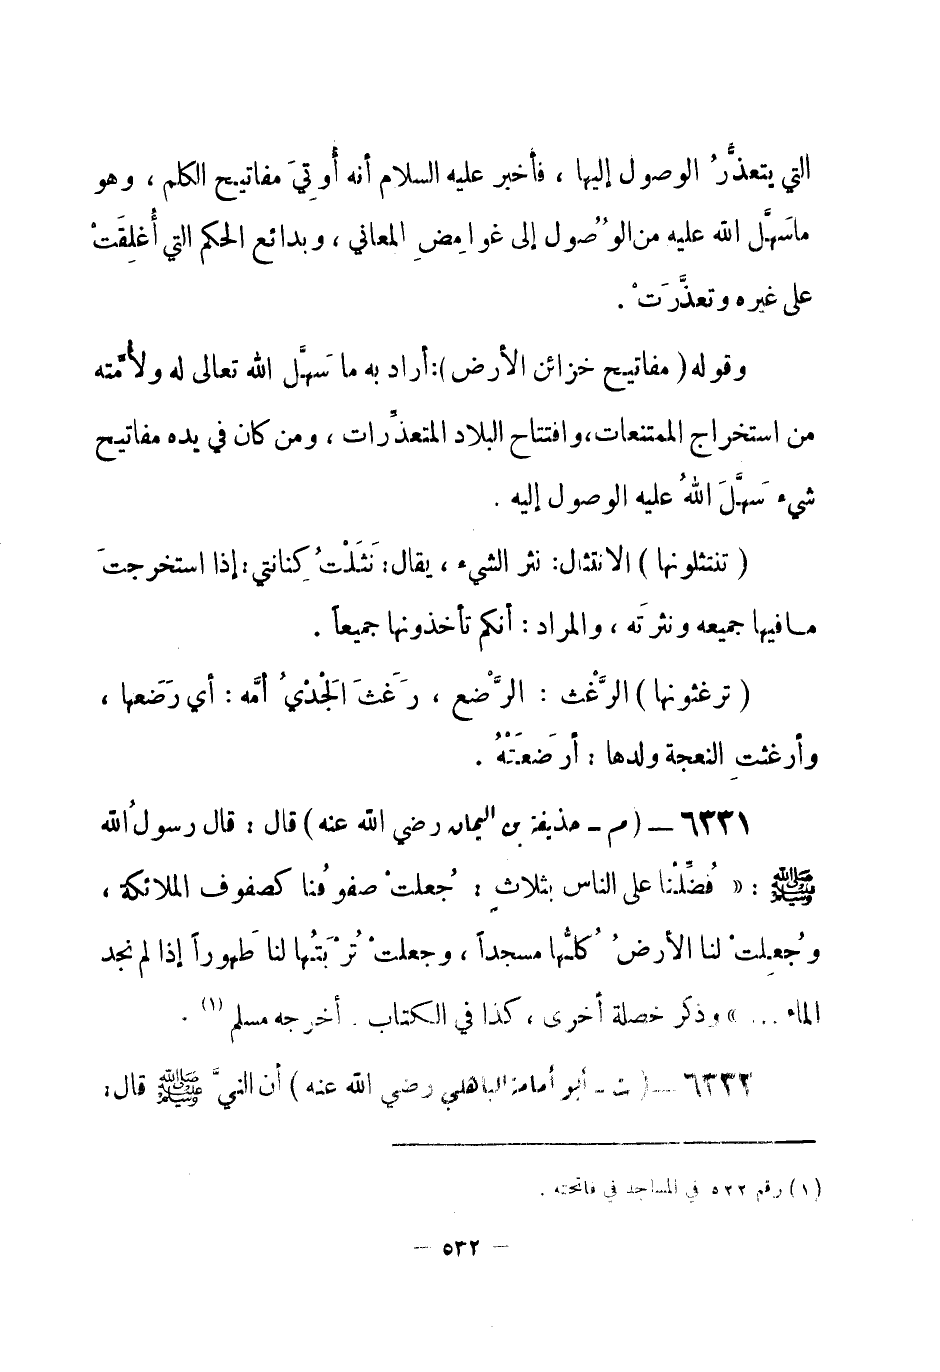 التي يتعذَّرُ الوصول إليها ، فأخبر عليه السلام أنه أُوتيَ مفاتيح الكلم ، وهو
ماسَهَّل الله عليه من الوُصول إلى غوامِضِ المعاني ، وبدائع الحكم التي أُغلِقَتْ
على غيره وتعذَّرَتْ .
وقوله ( مفاتيح خزائن الأرض ): أراد به ما سَهَّل الله تعالى له ولأُمَّته
من استخراج الممتنعات ، وافتتاح البلاد المتعذِّرات ، ومن كان في يده مفاتيح
شيء سَهَّلَ اللهُ عليه الوصول إليه .
( تنتثلونها ) الانتثال: نثر الشيء ، يقال: نَثَلْتُ كِنانتي: إذا استخرجتَ
مـافيها جميعه ونثرتَه ، والمراد : أنكم تأخذونها جميعاً .
( ترغثونها ) الرَّغْث : الرَّضع ، رَغَثَ الجْدْيُ أمَّه : أي رَضَعها ،
وأرغثتِ النعجة ولدها : أرضَعَتْهُ .
٦٣٣١ – ( م - حذيفة بن اليمان رضي الله عنه ) قال : قال رسولُ الله
ﷺ : « فُضِّلْنا على الناس بثلاثٍ : جُعلتْ صفوفُنا كصفوف الملائكة ،
وجُعِلتْ لنا الأرضُ كُلُّها مسجداً ، وجعلتْ تُرْبَتُها لنا طَهوراً إذا لم نجد
الماء ... » وذكر خصلة أخرى ، كذا في الكتاب . أخرجه مسلم (١) .
٦٣٣٢ – ( ت - أبو أمامة الباهلي رضي الله عنه ) أن النبيَّ ﷺ قال:
(١) رقم ٥٢٢ في المساجد في فاتحته .
– ٥٣٢ –